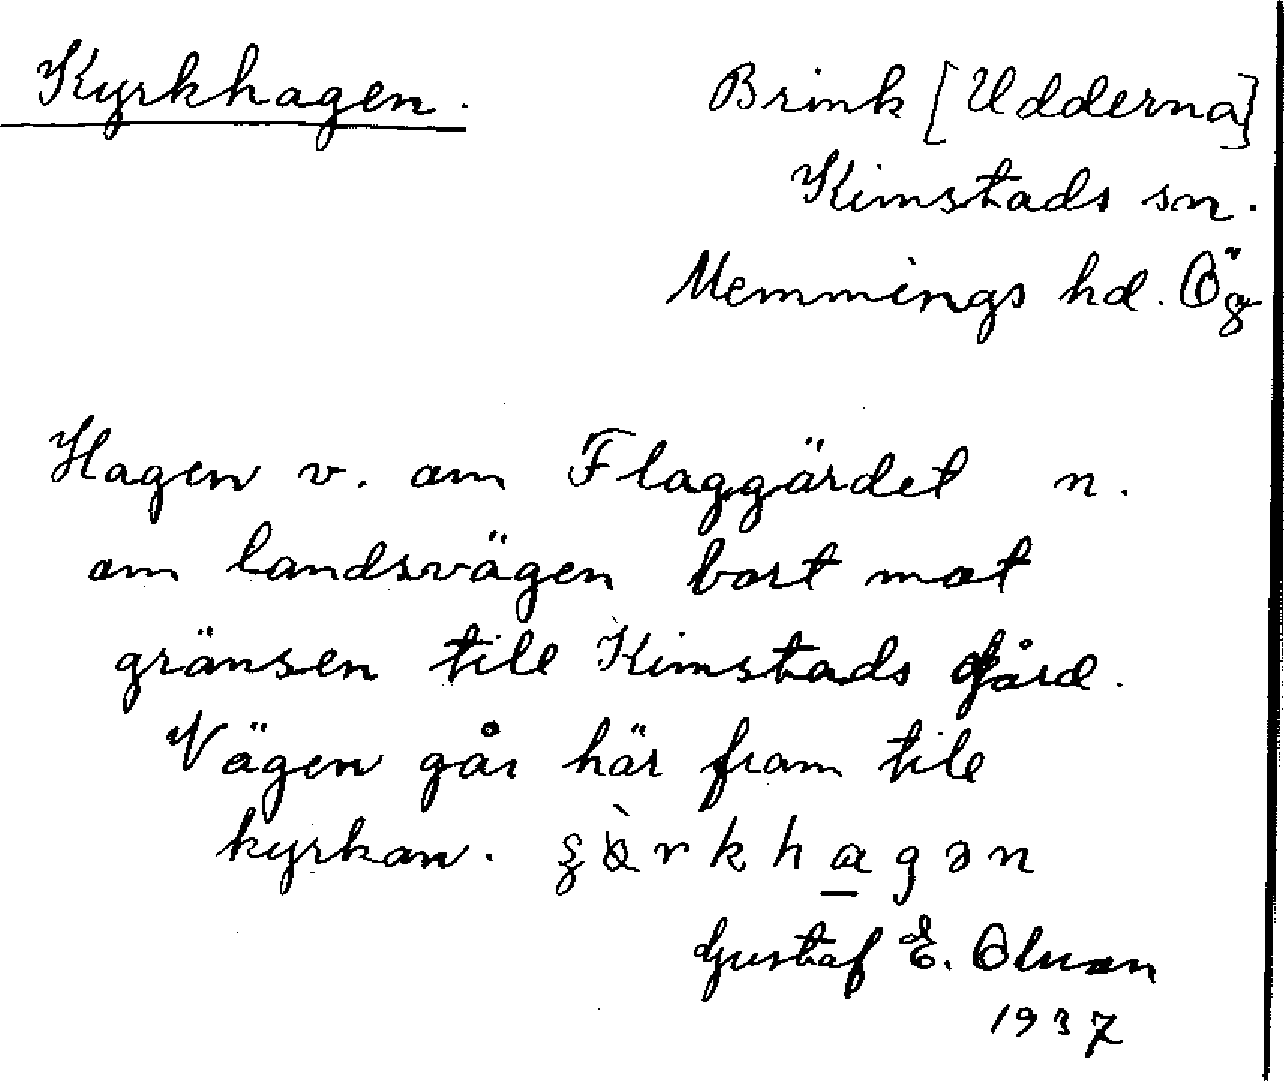 Kyrkhagen. Brink [Udderna]
Kimstads sn.
Memmings hd. Ög
Hagen v. om Flaggärdet n.
om landsvägen bort mot
gränsen till Kimstads gård.
Vägen går här fram till
kyrkan.
Gustaf E. Olsson
1937